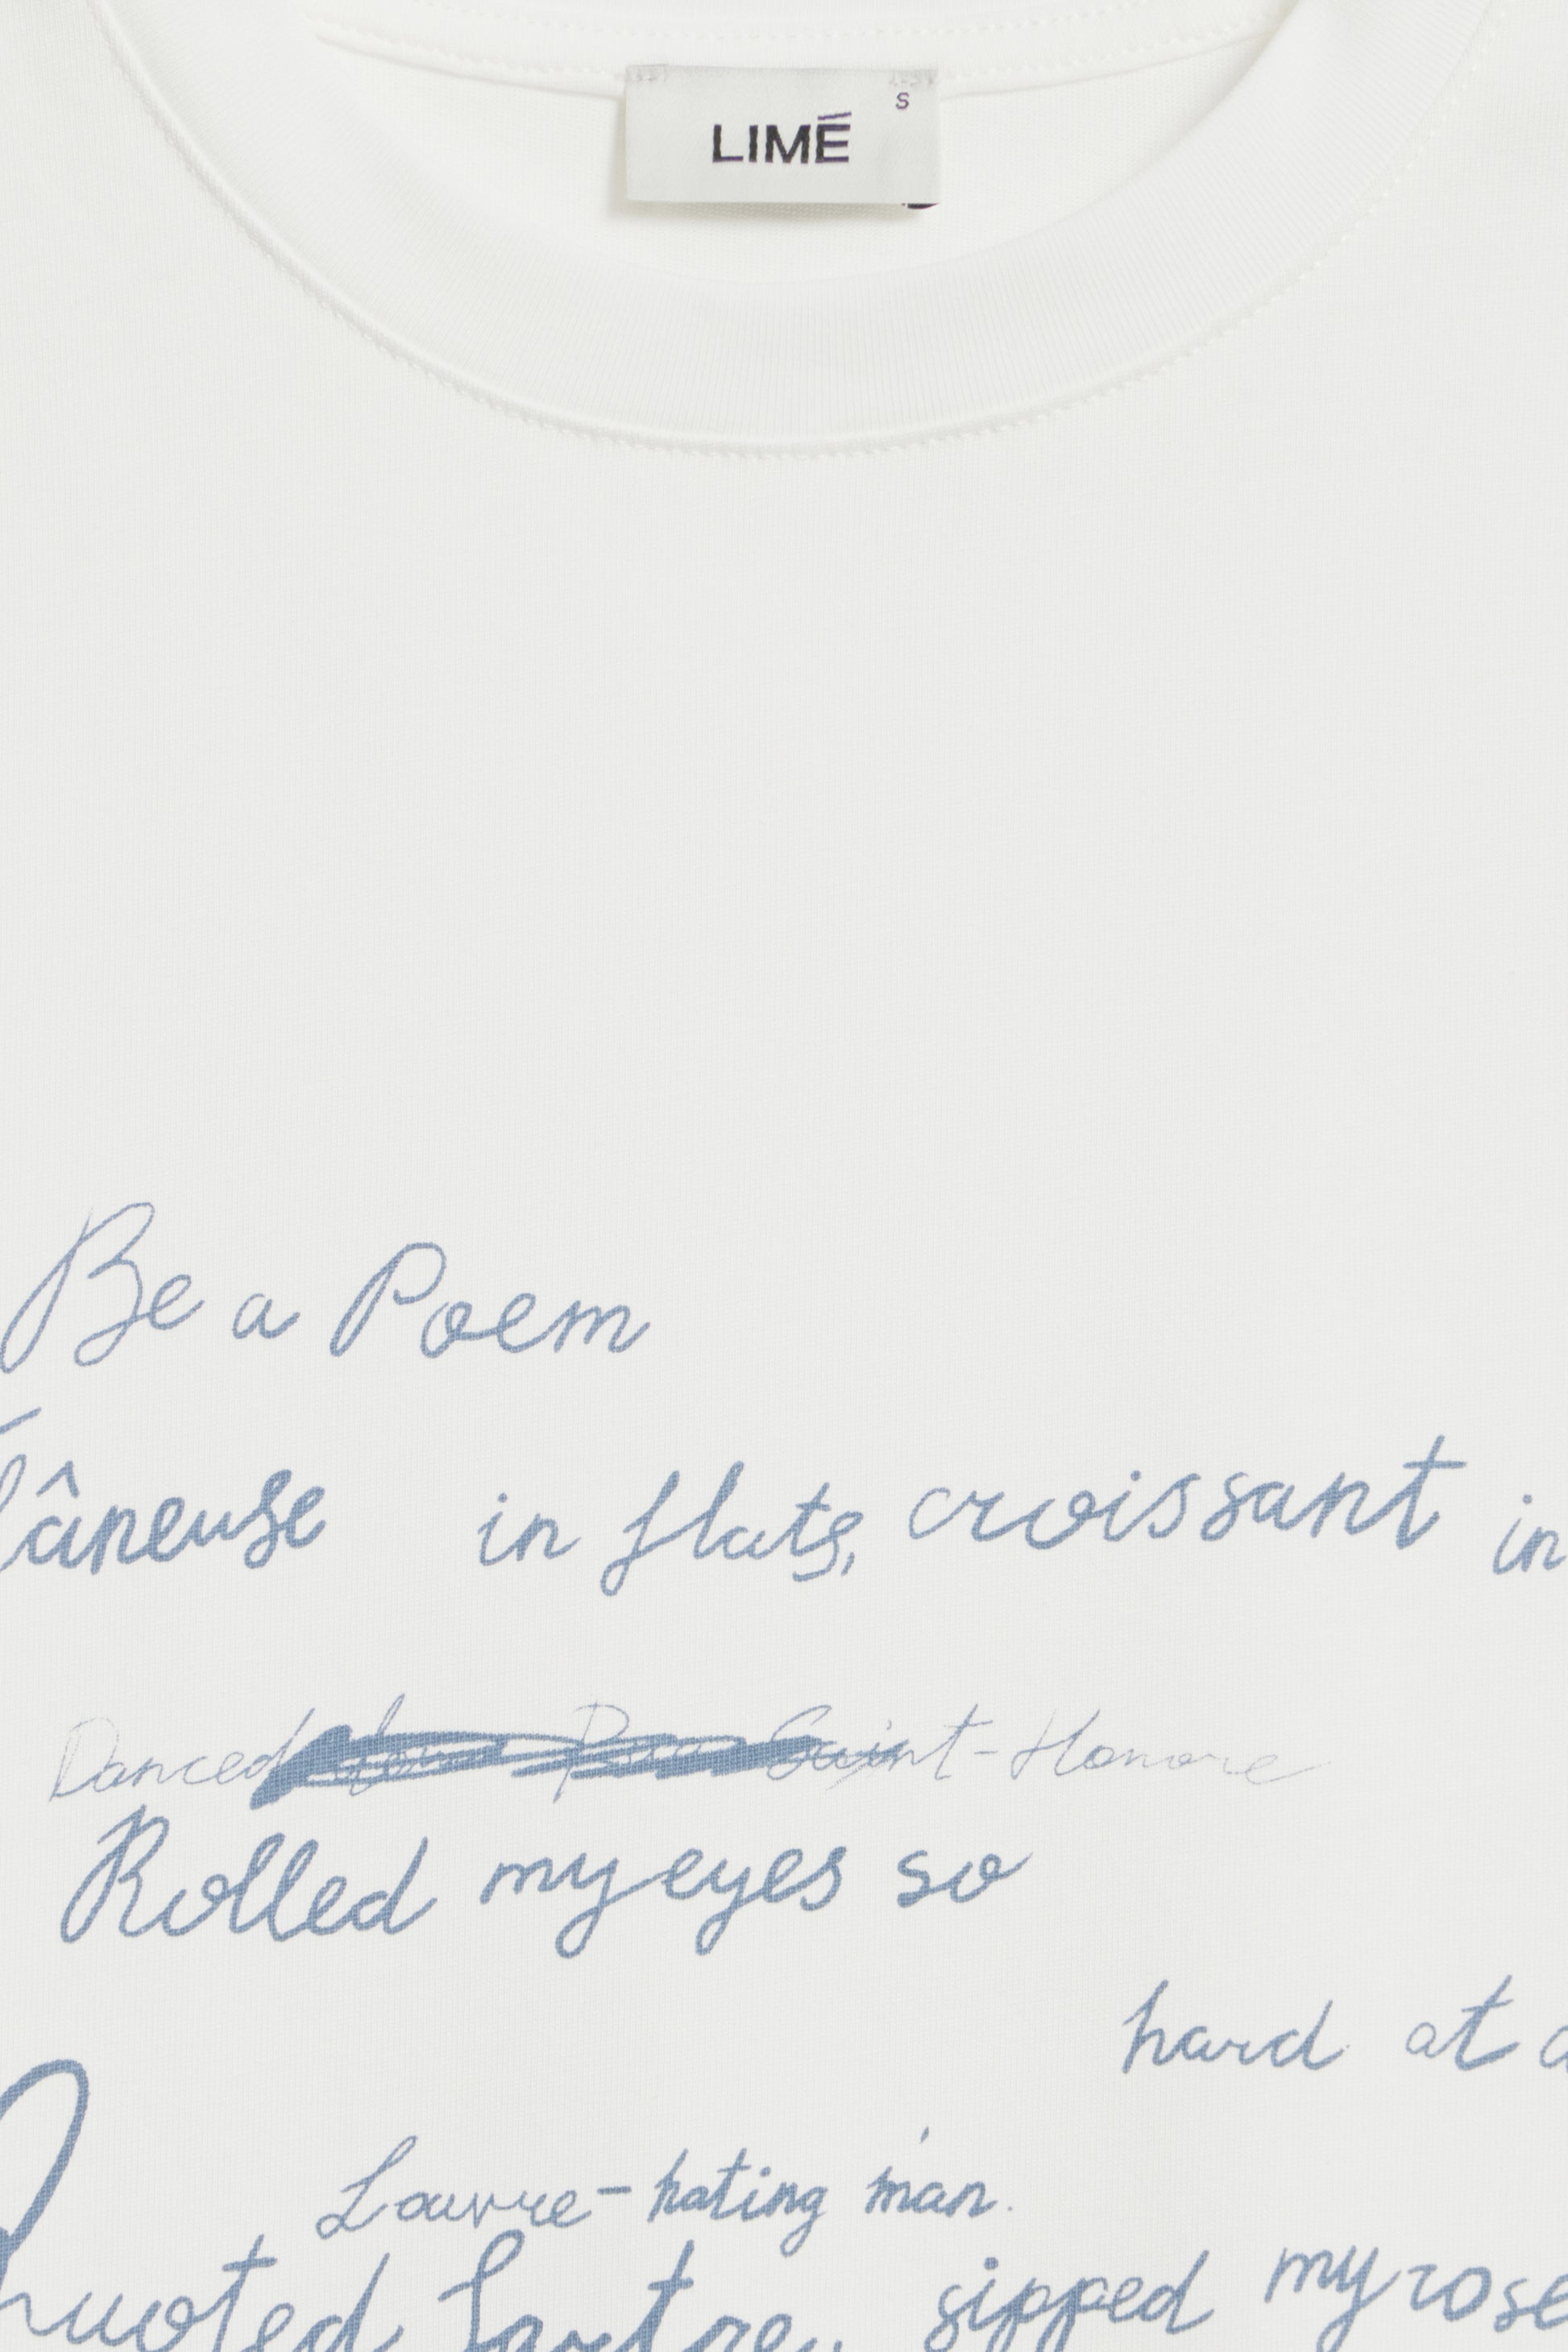 LIMÉ
S
Be a Poem
lâneuse in flats, croissant in
Danced down Rue Saint-Honore
Rolled my eyes so
hard at a
Louvre-hating man.
Quoted Sartre, sipped my rose